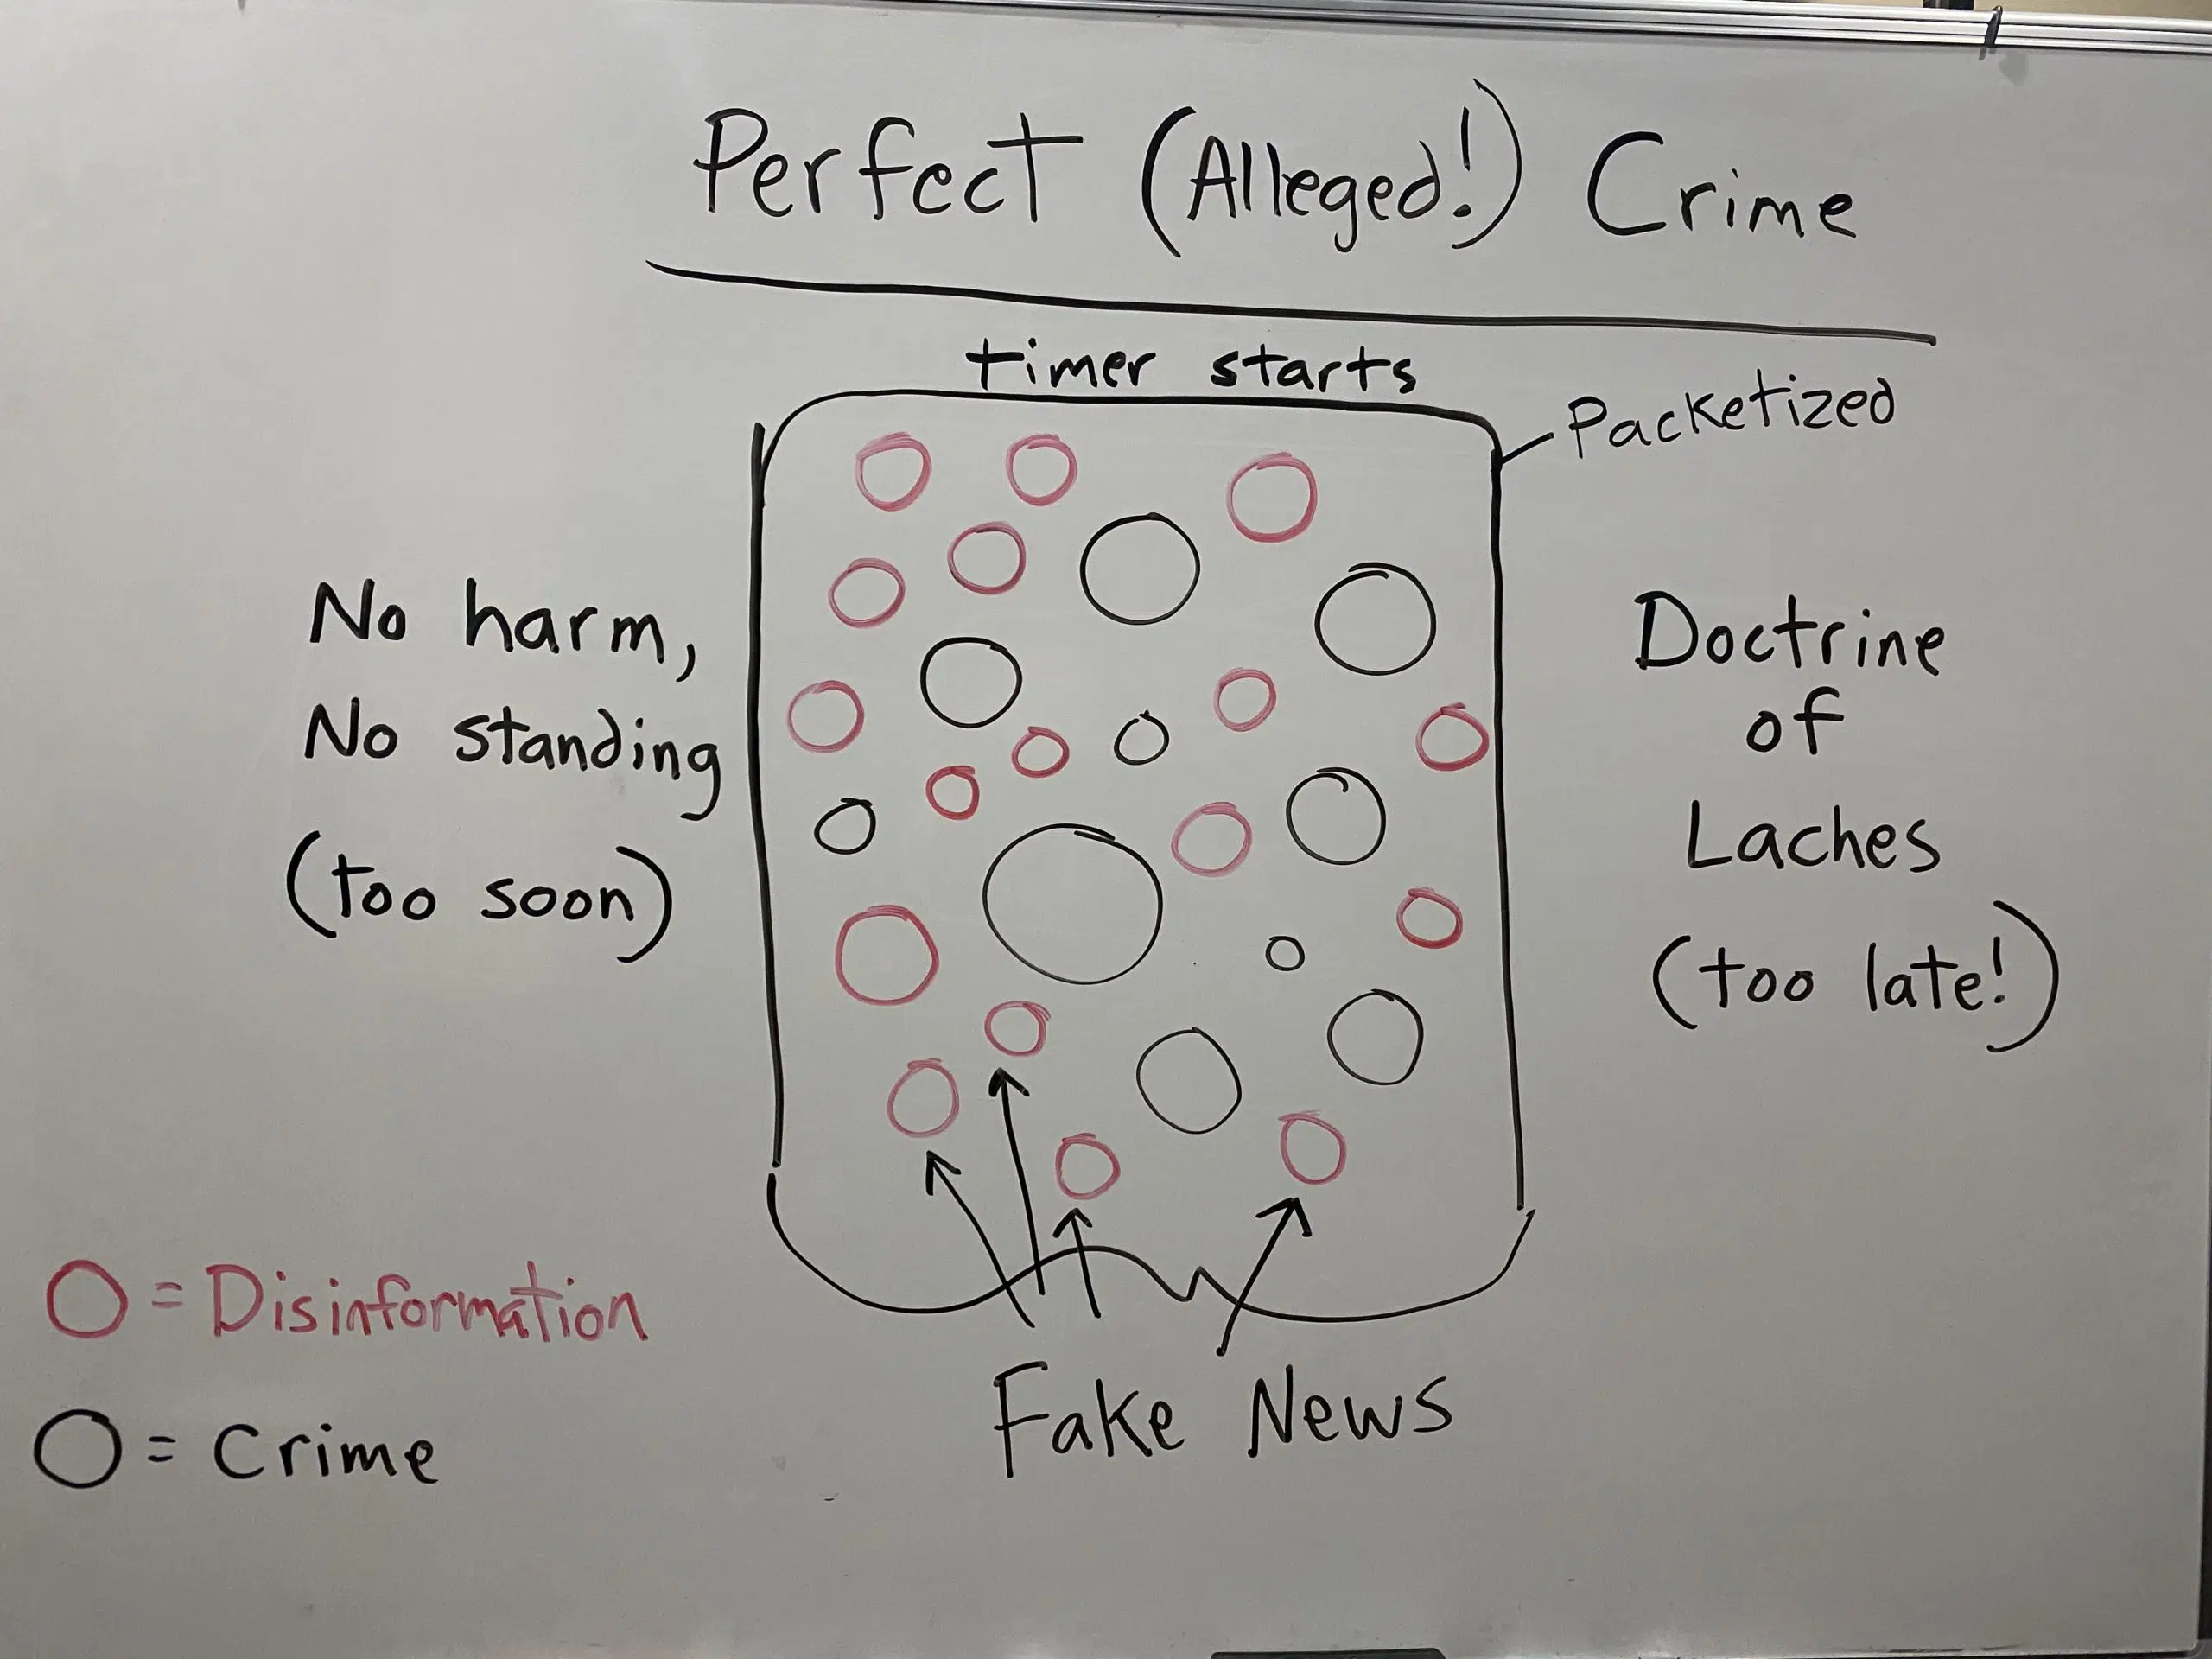 Perfect (Alleged!) Crime
timer starts
Packetized
No harm,
No standing
(too soon)
Doctrine
of
Laches
(too late!)
O = Disinformation
O = Crime
Fake News